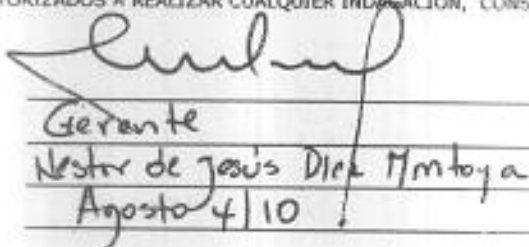 TORIZADOS A REALIZAR CUALQUIER INDAGACIÓN, CONS
Gerante
Nestor de Jesús Diez Montoya
Agosto 4/10